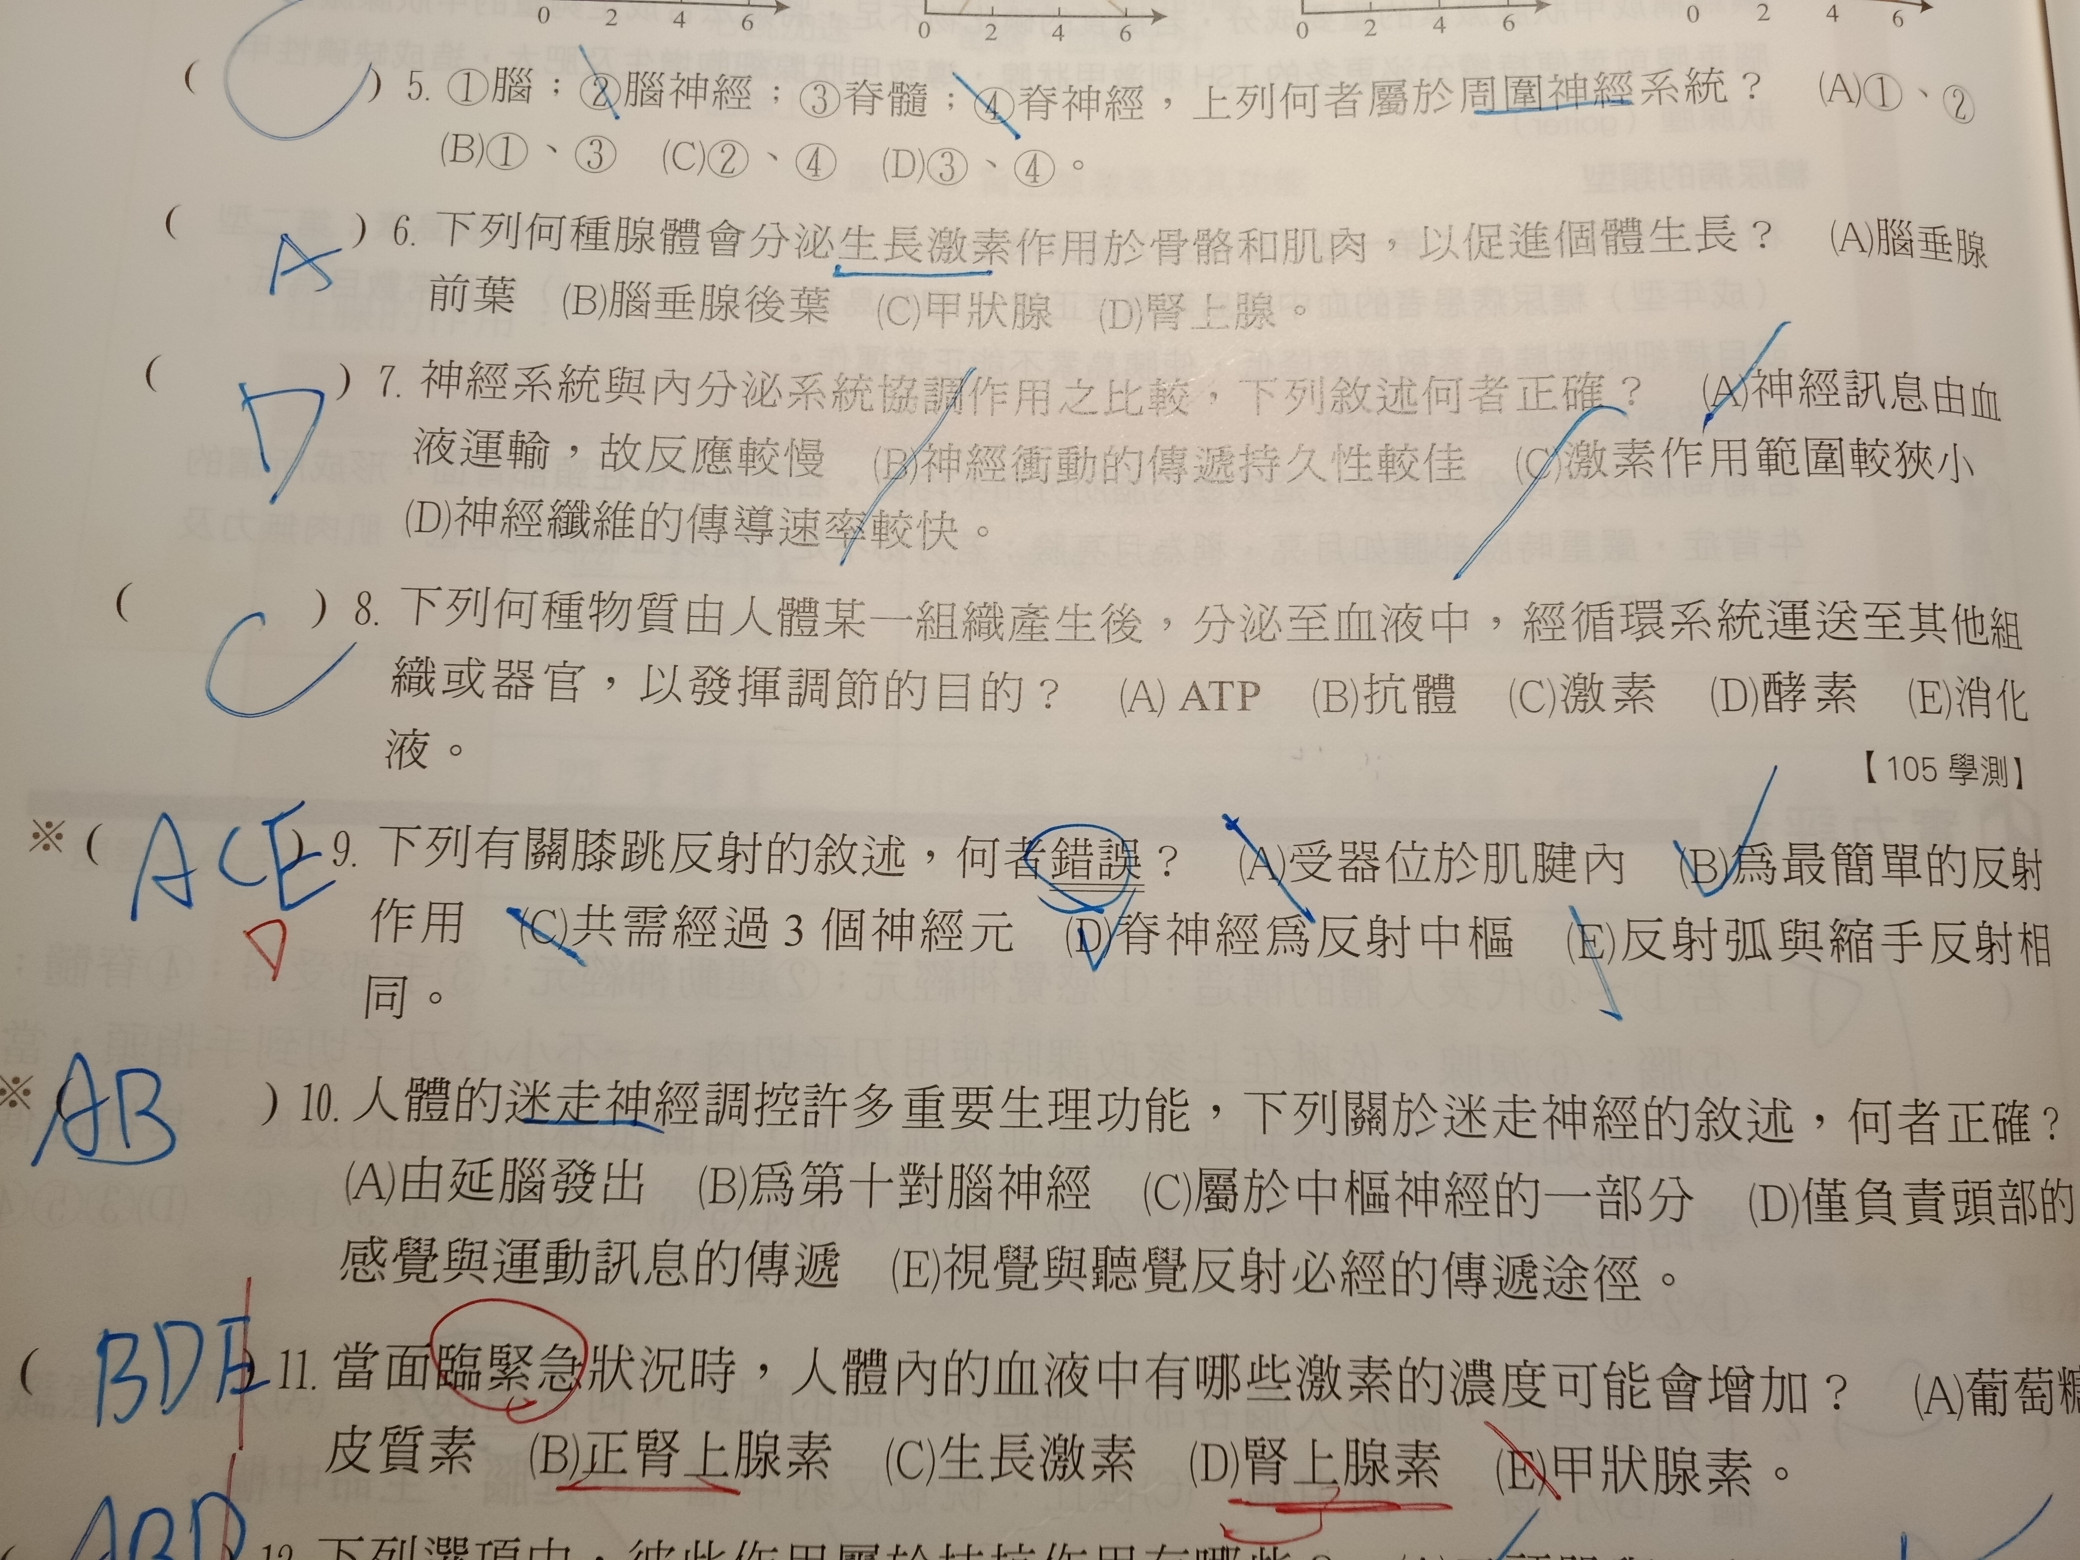 0 2 4 6 0 2 4 6 0 2 4 6 0 2 4 6
( C ) 5. ①腦；②腦神經；③脊髓；④脊神經，上列何者屬於周圍神經系統？ (A)①、②
(B)①、③ (C)②、④ (D)③、④。
( A ) 6. 下列何種腺體會分泌生長激素作用於骨骼和肌肉，以促進個體生長？ (A)腦垂腺
前葉 (B)腦垂腺後葉 (C)甲狀腺 (D)腎上腺。
( D ) 7. 神經系統與內分泌系統協調作用之比較，下列敘述何者正確？ (A)神經訊息由血
液運輸，故反應較慢 (B)神經衝動的傳遞持久性較佳 (C)激素作用範圍較狹小
(D)神經纖維的傳導速率較快。
( C ) 8. 下列何種物質由人體某一組織產生後，分泌至血液中，經循環系統運送至其他組
織或器官，以發揮調節的目的？ (A) ATP (B)抗體 (C)激素 (D)酵素 (E)消化
液。 【105 學測】
※( ACE ) 9. 下列有關膝跳反射的敘述，何者錯誤？ (A)受器位於肌腱內 (B)為最簡單的反射
D 作用 (C)共需經過 3 個神經元 (D)脊神經為反射中樞 (E)反射弧與縮手反射相
同。
※( AB ) 10. 人體的迷走神經調控許多重要生理功能，下列關於迷走神經的敘述，何者正確？
(A)由延腦發出 (B)為第十對腦神經 (C)屬於中樞神經的一部分 (D)僅負責頭部的
感覺與運動訊息的傳遞 (E)視覺與聽覺反射必經的傳遞途徑。
( BDE ) 11. 當面臨緊急狀況時，人體內的血液中有哪些激素的濃度可能會增加？ (A)葡萄糖
皮質素 (B)正腎上腺素 (C)生長激素 (D)腎上腺素 (E)甲狀腺素。
( ABD ) 12. 下列選項中，彼此作用屬於拮抗作用有哪些？